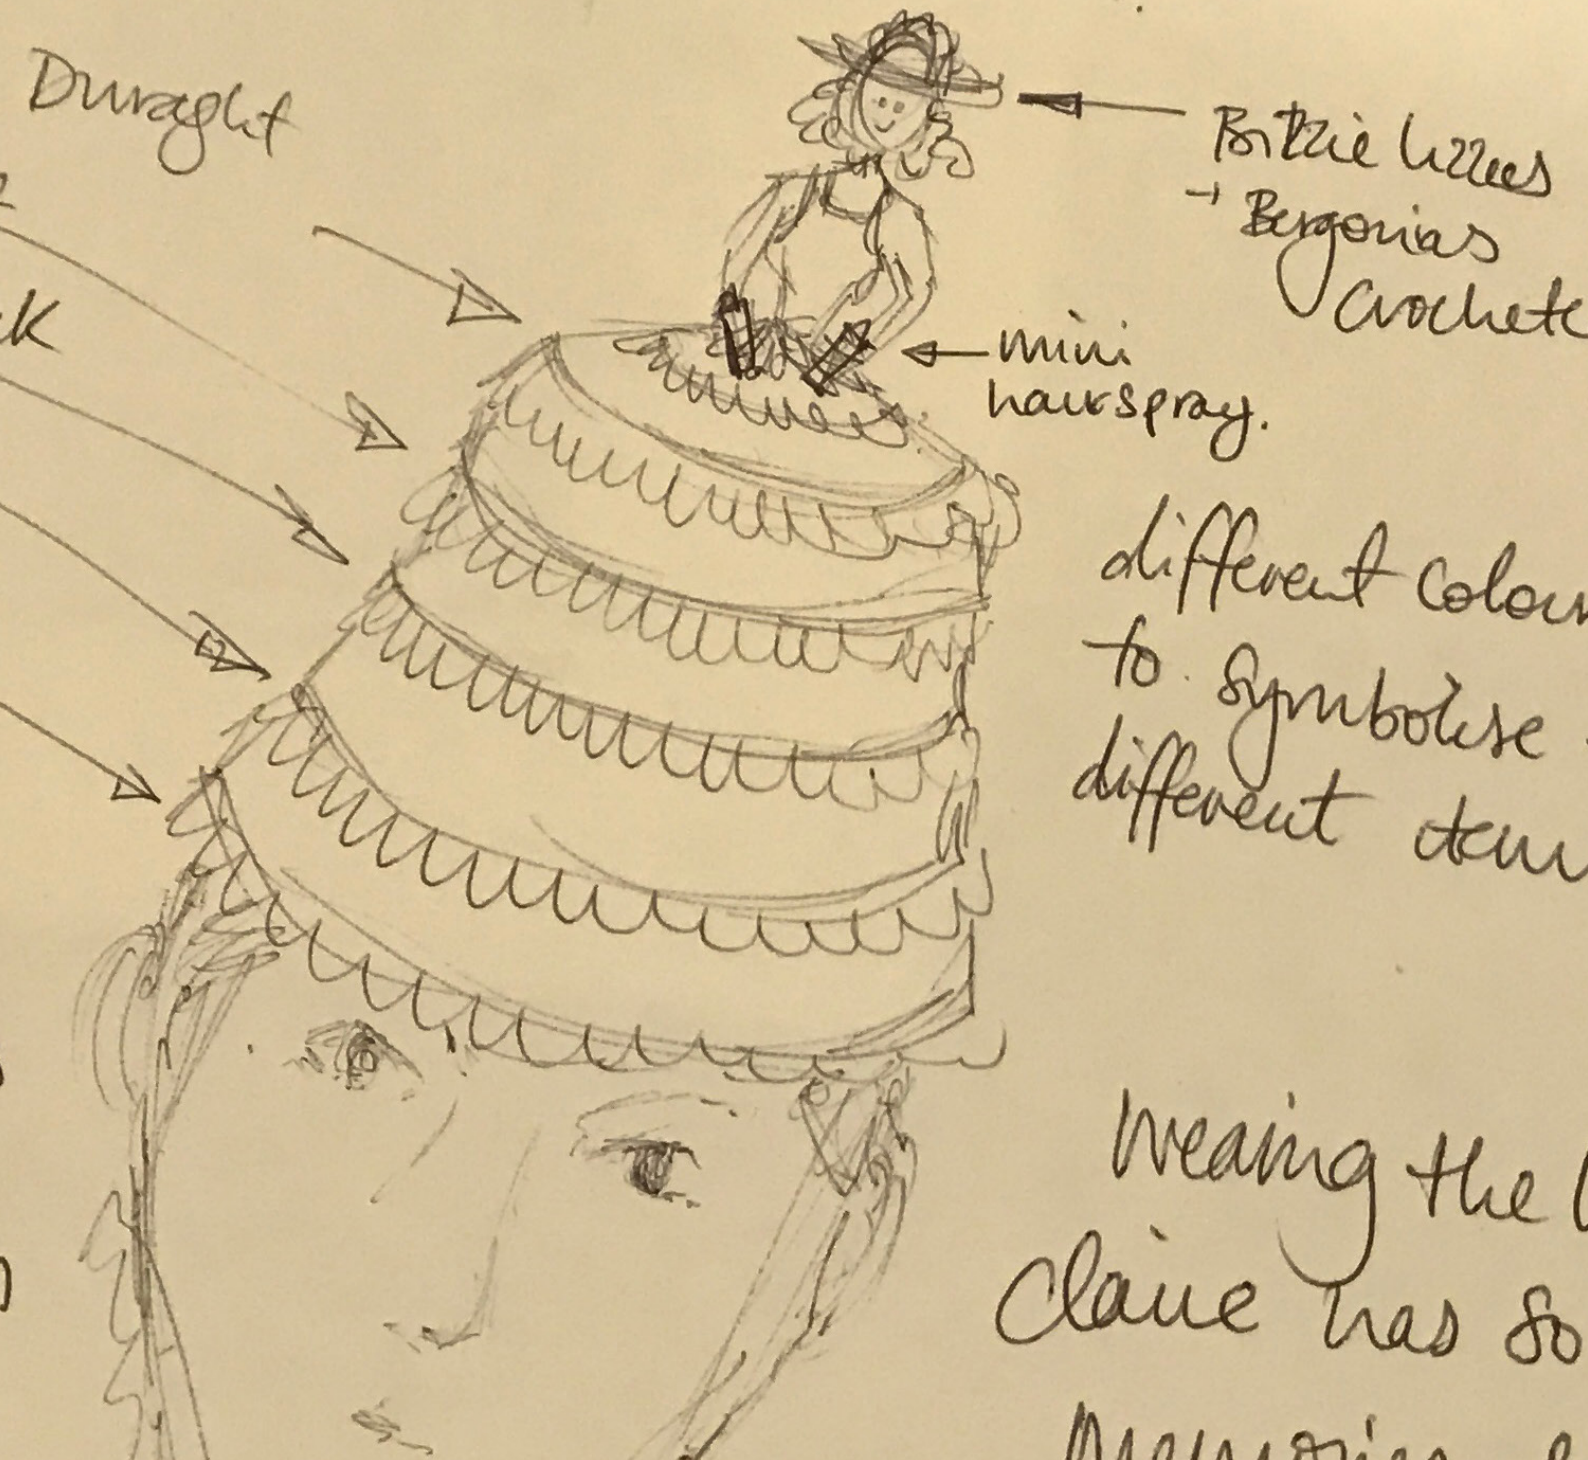 Duraght
Bizzie lizzies
→ Bergonias
Crochete
mini
hairspray.
different colour
to symbolise
different
wearing the
Claire has so
Memories